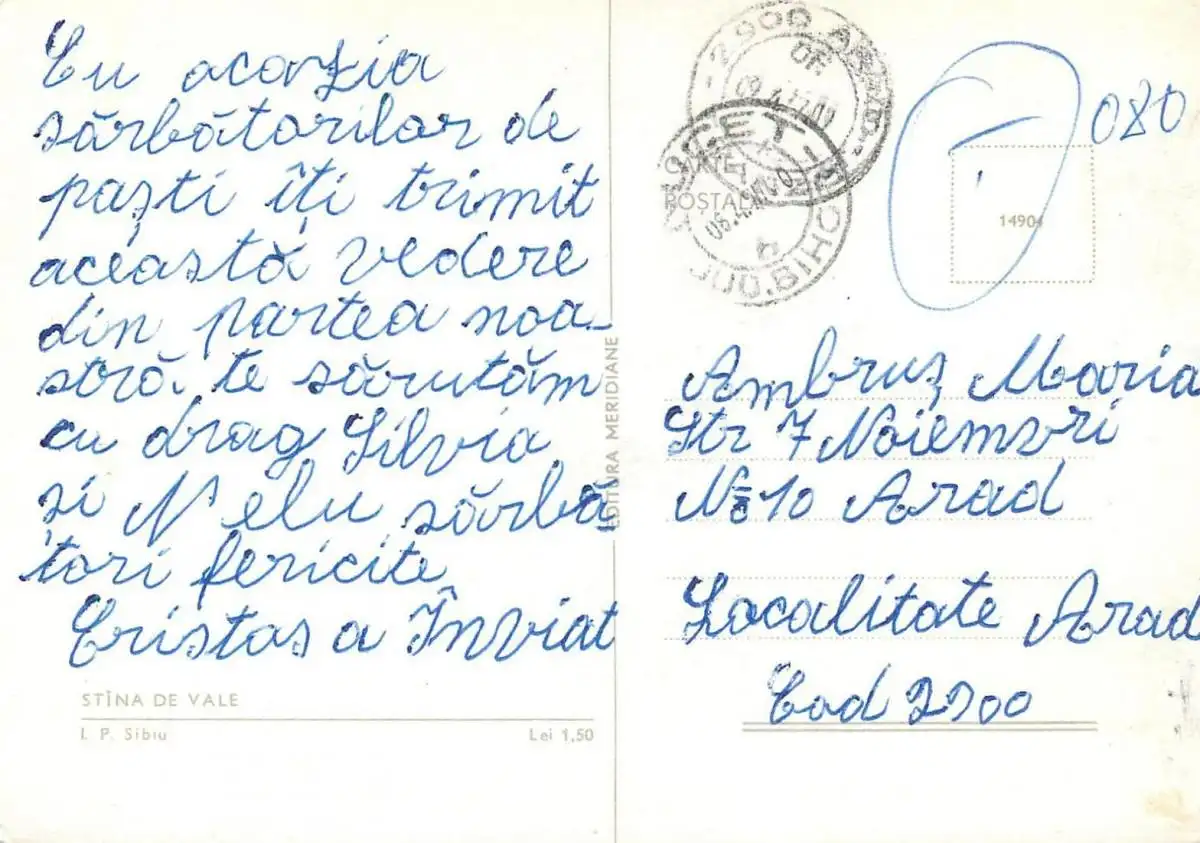 Cu acorzia
sărbătorilor de
paști îți trimit
această vedere
din partea noa-
stră te sărutăm
cu drag Silvia
si Nelu sărbă
tori fericite
Cristos a Înviat
STÎNA DE VALE
I. P. Sibiu
Lei 1,50
EDITURA MERIDIANE
2900 ARAD
OF.
JUD. BIHOR
POȘTALĂ
080
14904
Ambruș Maria
Str 7 Noiemvri
No 10 Arad
Localitate Arad
Cod 2900